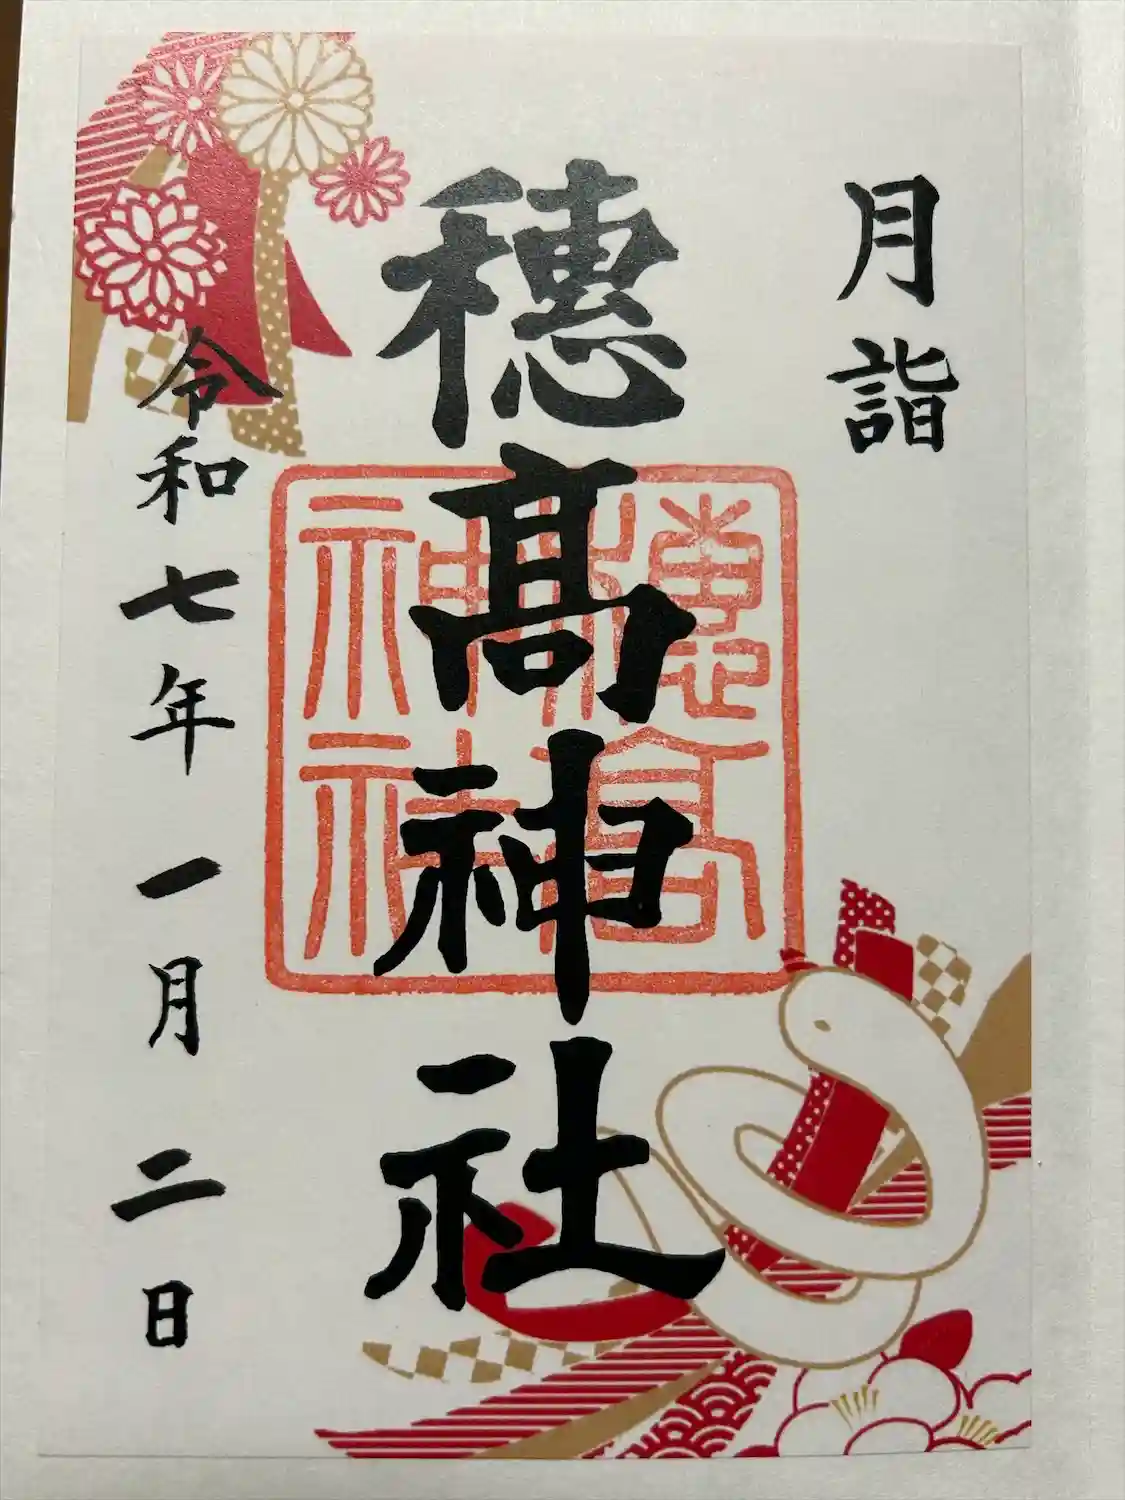 月詣
穂髙神社
穂高
神社
令和七年一月二日